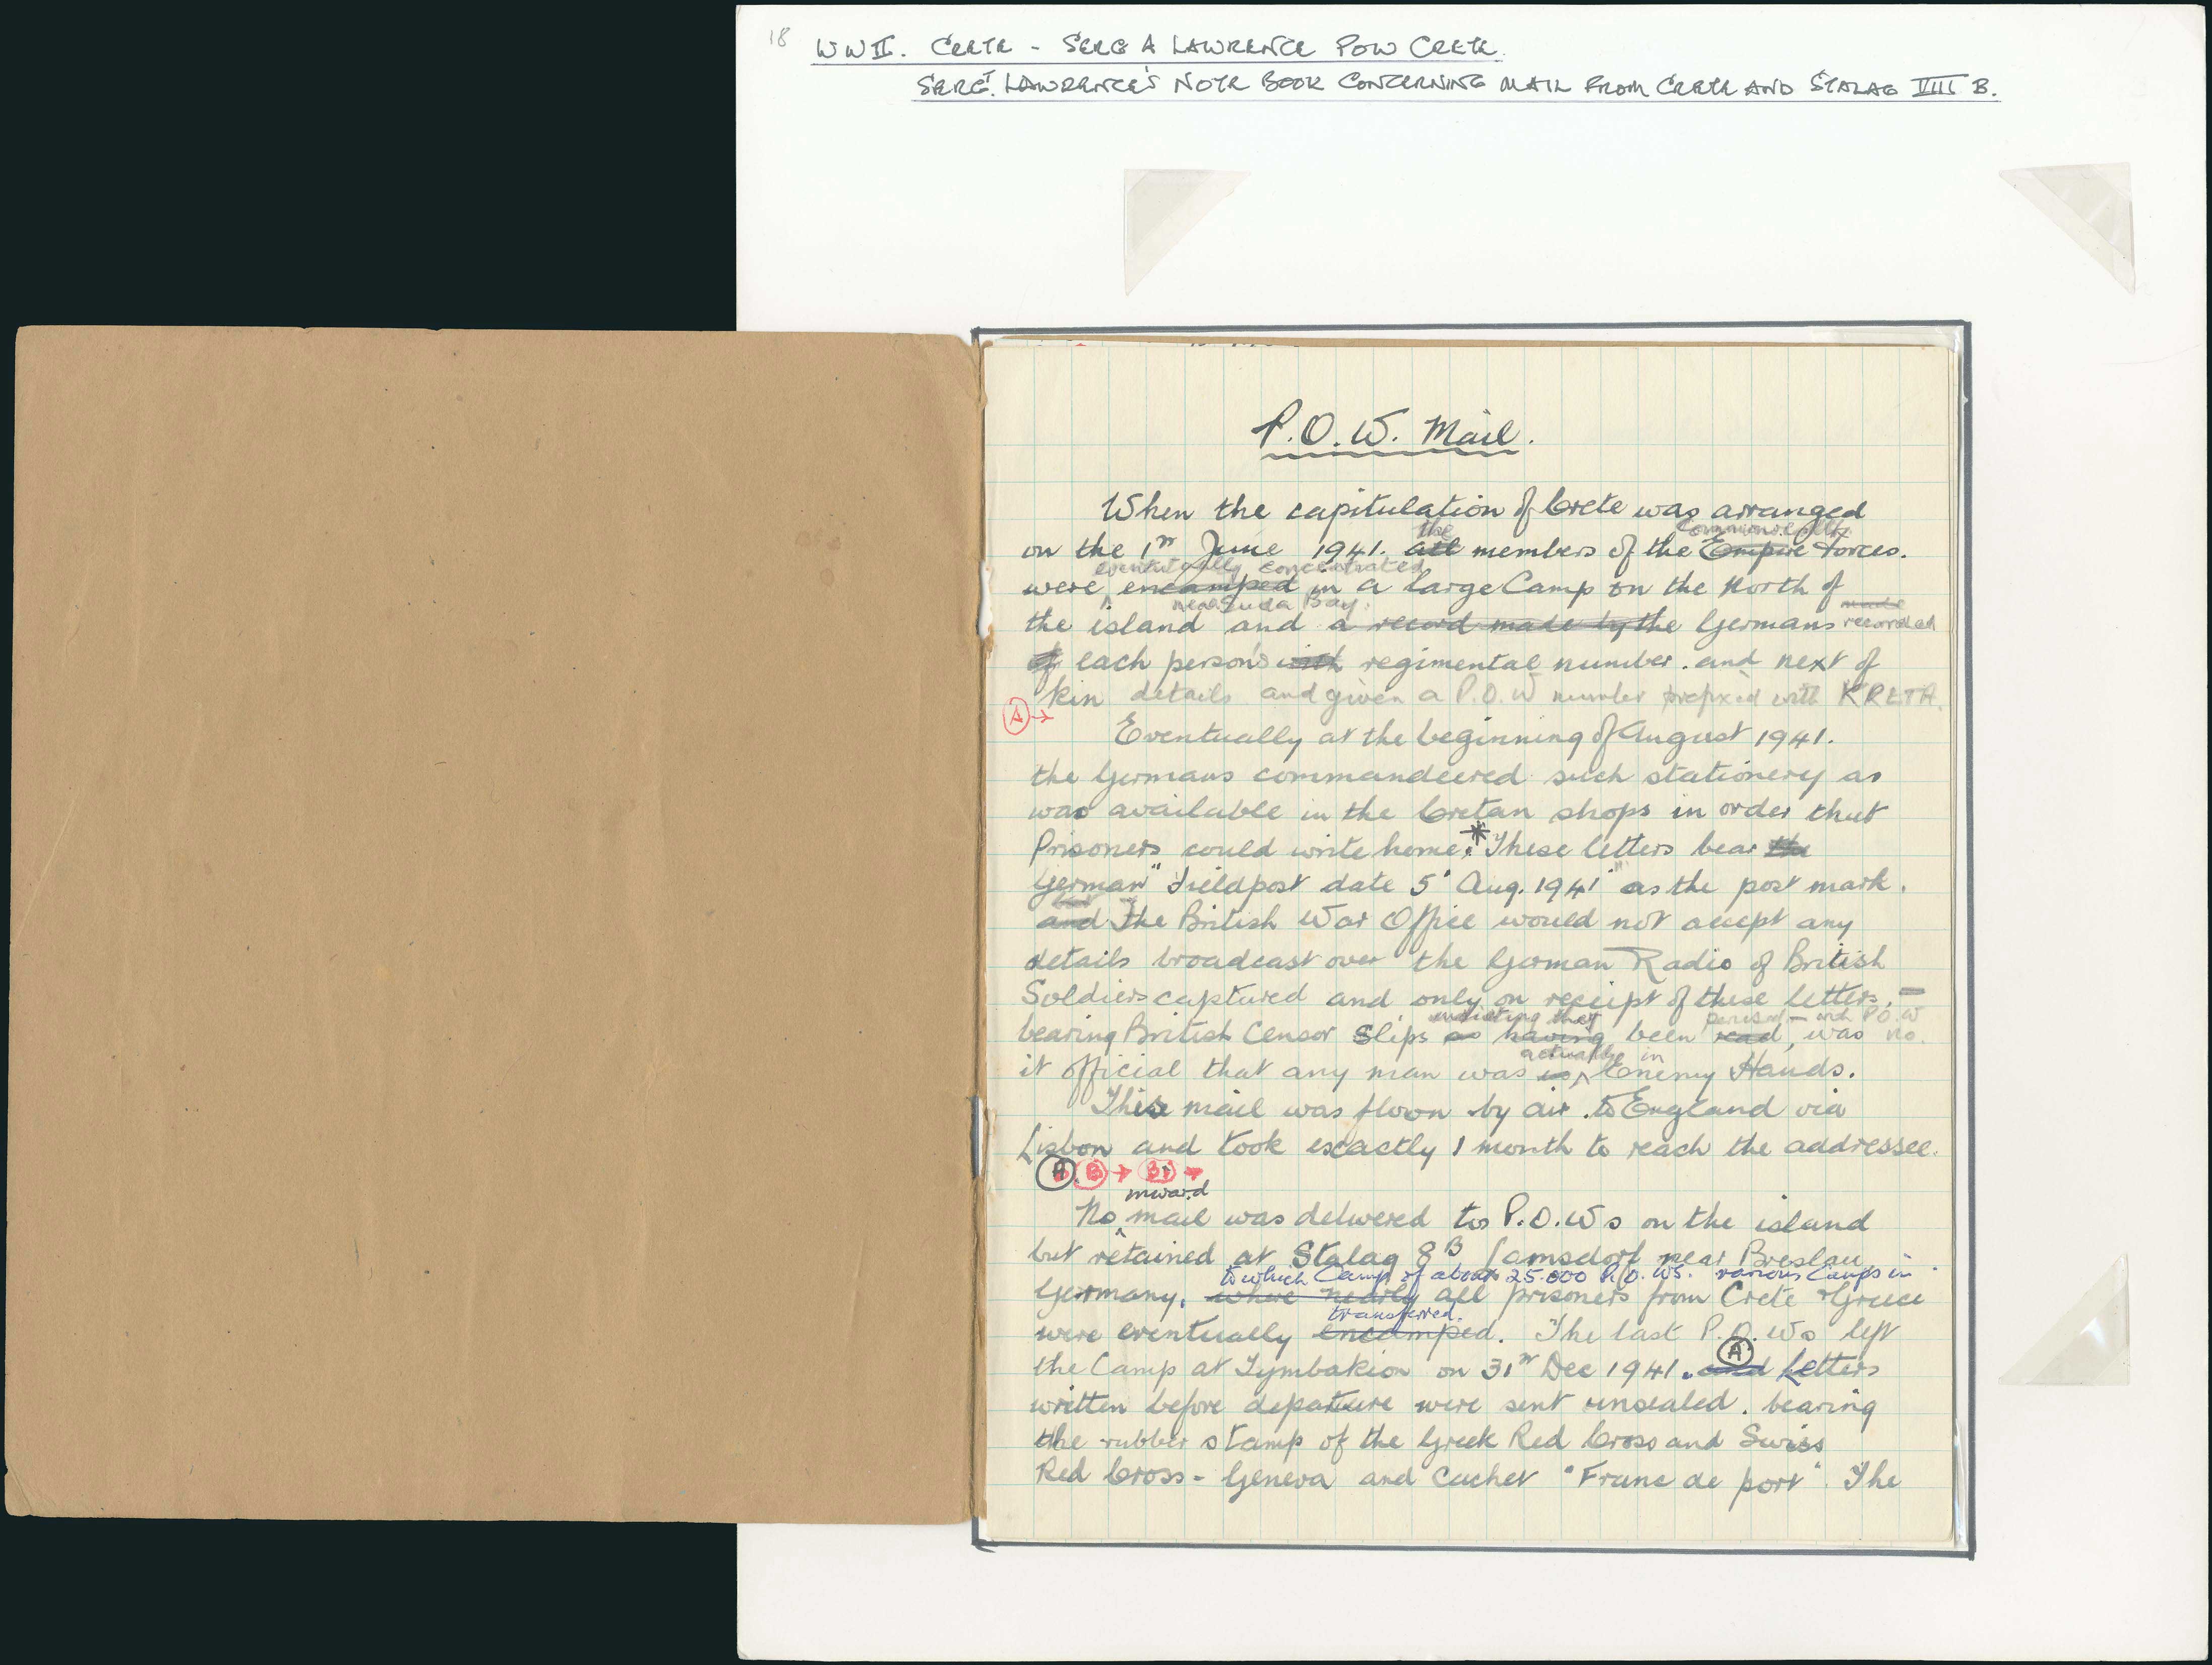 18
WWII. CRETE - SERG A LAWRENCE POW CRETE.
SERGT. LAWRENCE'S NOTE BOOK CONCERNING MAIL FROM CRETE AND STALAG VIII B.
P.O.W. Mail.
When the capitulation of Crete was arranged
the Commonwealth
on the 1st June 1941. all members of the Empire Forces.
eventually concentrated
were encamped in a large Camp on the North of
near Suda Bay. made
the island and a record made by the Germans recorded
of each person's with regimental number. and next of
kin details and given a P.O.W number prefixed with KRETA.
A →
Eventually at the beginning of August 1941.
the Germans commandeered such stationery as
was available in the Cretan shops in order that
Prisoners could write home.* These letters bear the
German "Fieldpost date 5' Aug. 1941" as the post mark.
and The British War Office would not accept any
details broadcast over the German Radio of British
Soldiers captured and only on receipt of these letters, -
indicating they P.O.W
bearing British Censor Slips as having been read, was no.
actually in
it official that any man was is Enemy Hands.
This mail was flown by air. to England via
Lisbon and took exactly 1 month to reach the addressee.
A. B → B1 →
inward
No mail was delivered to P.O.Ws on the island
but retained at Stalag 8B Lamsdorf near Breslau
to which Camp of about 25.000 P.O.WS. various Camps in
Germany, where nearly all prisoners from Crete & Greece
transferred.
were eventually encamped. The last P.O.Ws left
A
the Camp at Tymbakion on 31st Dec 1941. and Letters
written before depature were sent unsealed. bearing
the rubber stamp of the Greek Red Cross and Swiss
Red Cross - Geneva and Cachet "Franc de port". The